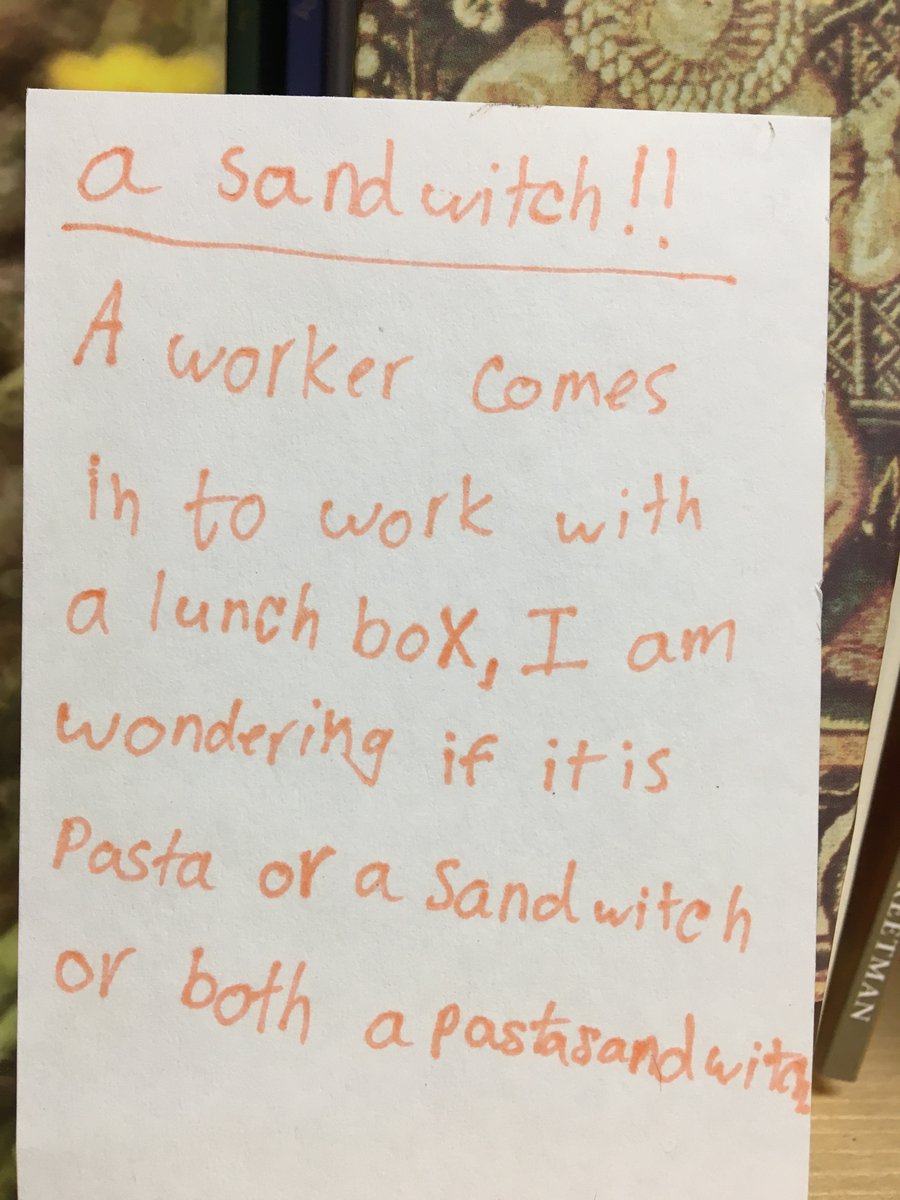 a sandwitch!!
A worker comes
in to work with
a lunch box, I am
wondering if it is
Pasta or a sandwitch
or both a pastasandwitch
REETMAN